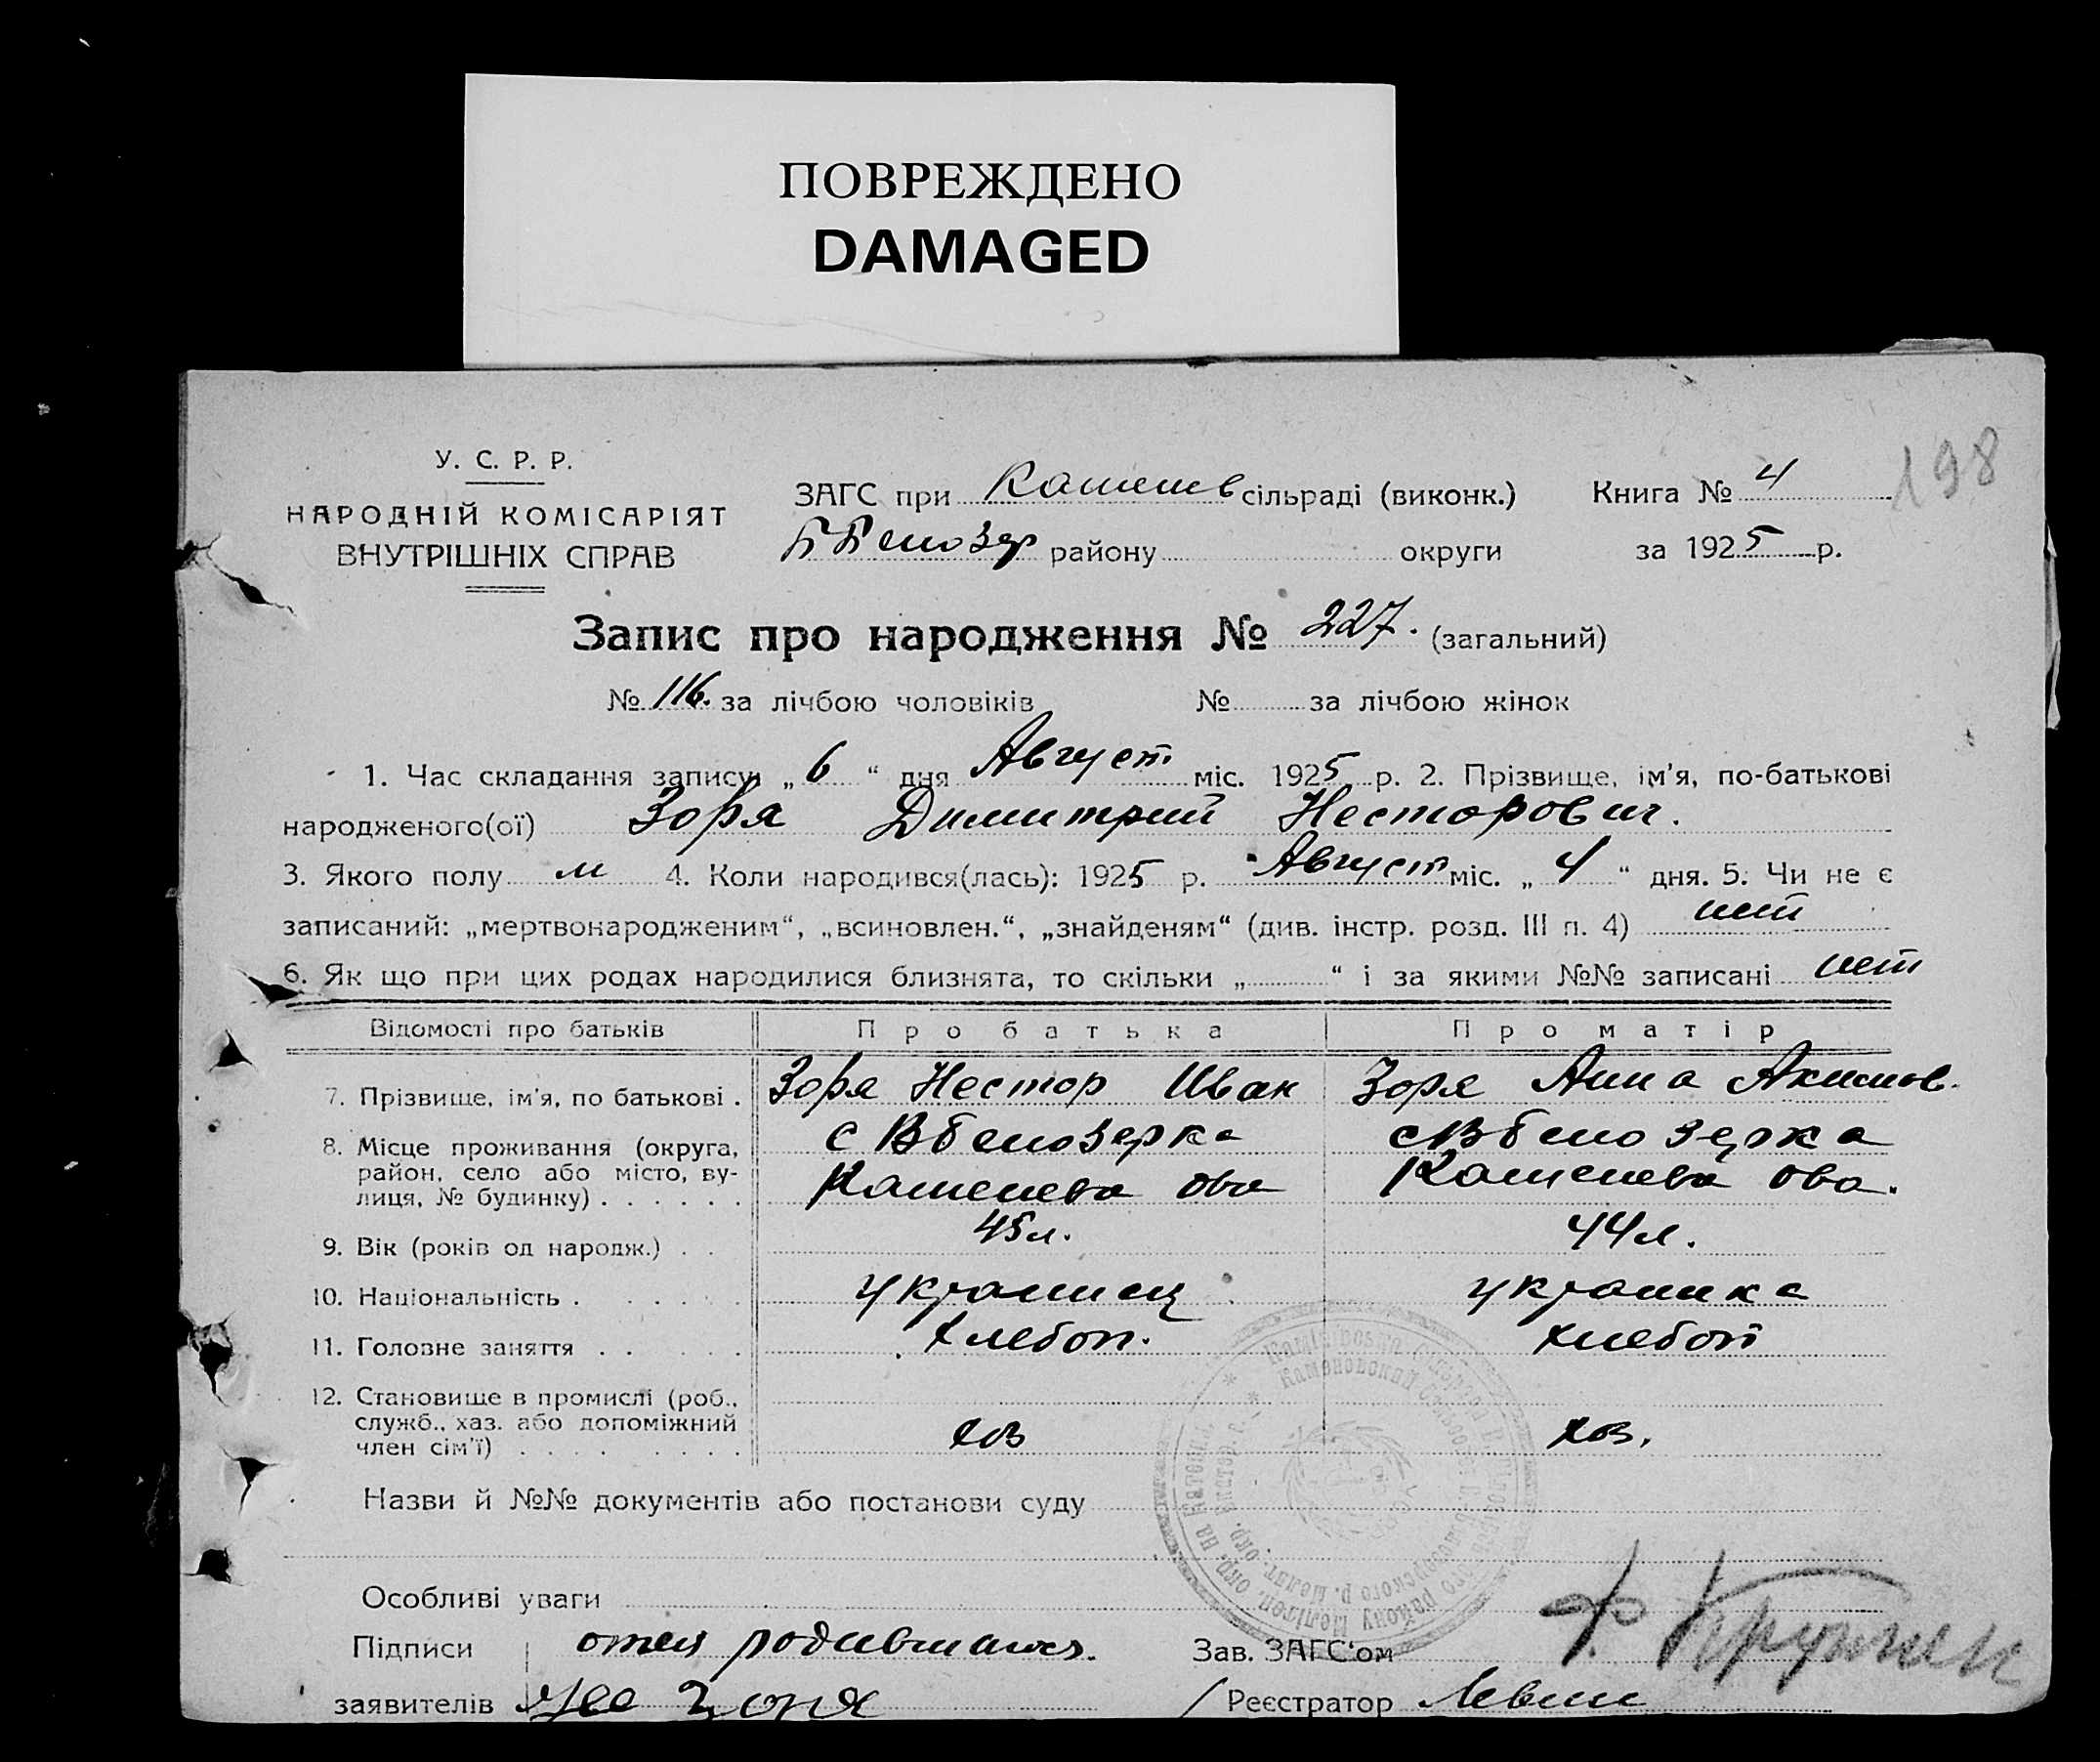 ПОВРЕЖДЕНО
DAMAGED
198
У. С. Р. Р.
НАРОДНІЙ КОМІСАРІЯТ
ВНУТРІШНІХ СПРАВ
ЗАГС при Каменев сільраді (виконк.) Книга № 4
району округи за 1925 р.
Запис про народження № 227. (загальний)
№ 116. за лічбою чоловіків № за лічбою жінок
1. Час складання запису „6“ дня Август міс. 1925 р. 2. Прізвище, ім'я, по-батькові
народженого(ої) Зоря Димитрий Несторович.
3. Якого полу м 4. Коли народився(лась): 1925 р. Август міс. „4“ дня. 5. Чи не є
записаний: „мертвонародженим“, „всиновлен.“, „знайденям“ (див. інстр. розд. III п. 4) нет
6. Як що при цих родах народилися близнята, то скільки „ “ і за якими №№ записані нет
Відомості про батьків Про батька Про матір
7. Прізвище, ім'я, по батькові . Зоря Нестор Иван Зоря Анна Акимов.
8. Місце проживання (округа, с Вбелозерка с Вбелозерка
район, село або місто, ву-
лиця, № будинку) . . . . . . Каменева ова Каменева ова.
9. Вік (років од народж.) . . 45 л. 44 л.
10. Національність . . . . . . украинец украинка
11. Головне заняття . . . . . хлебоп. хлебоп
12. Становище в промислі (роб.,
служб., хаз. або допоміжний
член сім'ї) . . . . . . . . хоз хоз.
Назви й №№ документів або постанови суду
Особливі уваги
Підписи отец родившаяся. Зав. ЗАГС'ом
заявителів Зоря Реєстратор Левин